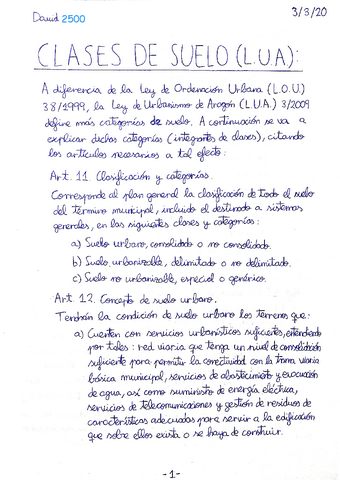 David 2500
3/3/20
CLASES DE SUELO (L.U.A):
A diferencia de la Ley de Ordenación Urbana (L.O.U.)
38/1999, la Ley de Urbanismo de Aragón (L.U.A.) 3/2009
define más categorías de suelo. A continuación se va a
explicar dichas categorías (integrantes de clases), citando
los artículos necesarios a tal efecto:
Art. 11. Clasificación y categorías.
Corresponde al plan general la clasificación de todo el suelo
del término municipal, incluido el destinado a sistemas
generales, en las siguientes clases y categorías:
a) Suelo urbano, consolidado o no consolidado.
b) Suelo urbanizable, delimitado o no delimitado.
c) Suelo no urbanizable, especial o genérico.
Art. 12. Concepto de suelo urbano.
Tendrán la condición de suelo urbano los terrenos que:
a) Cuenten con servicios urbanísticos suficientes, entendiendo
por tales: red viaria que tenga un nivel de consolidación
suficiente para permitir la conectividad con la trama viaria
básica municipal, servicios de abastecimiento y evacuación
de agua, así como suministro de energía eléctrica,
servicios de telecomunicaciones y gestión de residuos de
características adecuadas para servir a la edificación
que sobre ellos exista o se haya de construir.
-1-